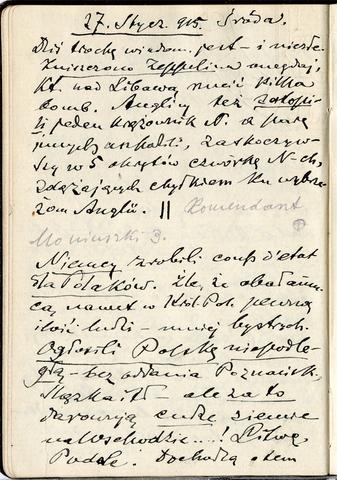 27. Stycz. 915. Środa.
Dziś trochę wiadom. jest – i nieźle.
Zniszczono Zeppelina onegdaj,
kt. nad Libawą rzucił kilka
bomb. Anglicy też zatopi-
li jeden krążownik N. a parę
innych uszkodzili, zaskoczyw-
szy w 5 okrętów czwórkę N-ch,
zdążających chyłkiem ku wybrze-
żom Anglii. || Komendant
Moniuszki 3.
Niemcy zrobili coup d'etat
dla Polaków. Źle, że obałamu-
cą nawet w Król. Pol. pewną
ilość ludzi – mniej bystrych.
Ogłosili Polskę niepodle-
głą – bez oddania Poznańsk.
Śląska itd – ale za to
darowują cudze ziemie
na Wschodzie...! Litwę,
Podole. Dochodzą o tem